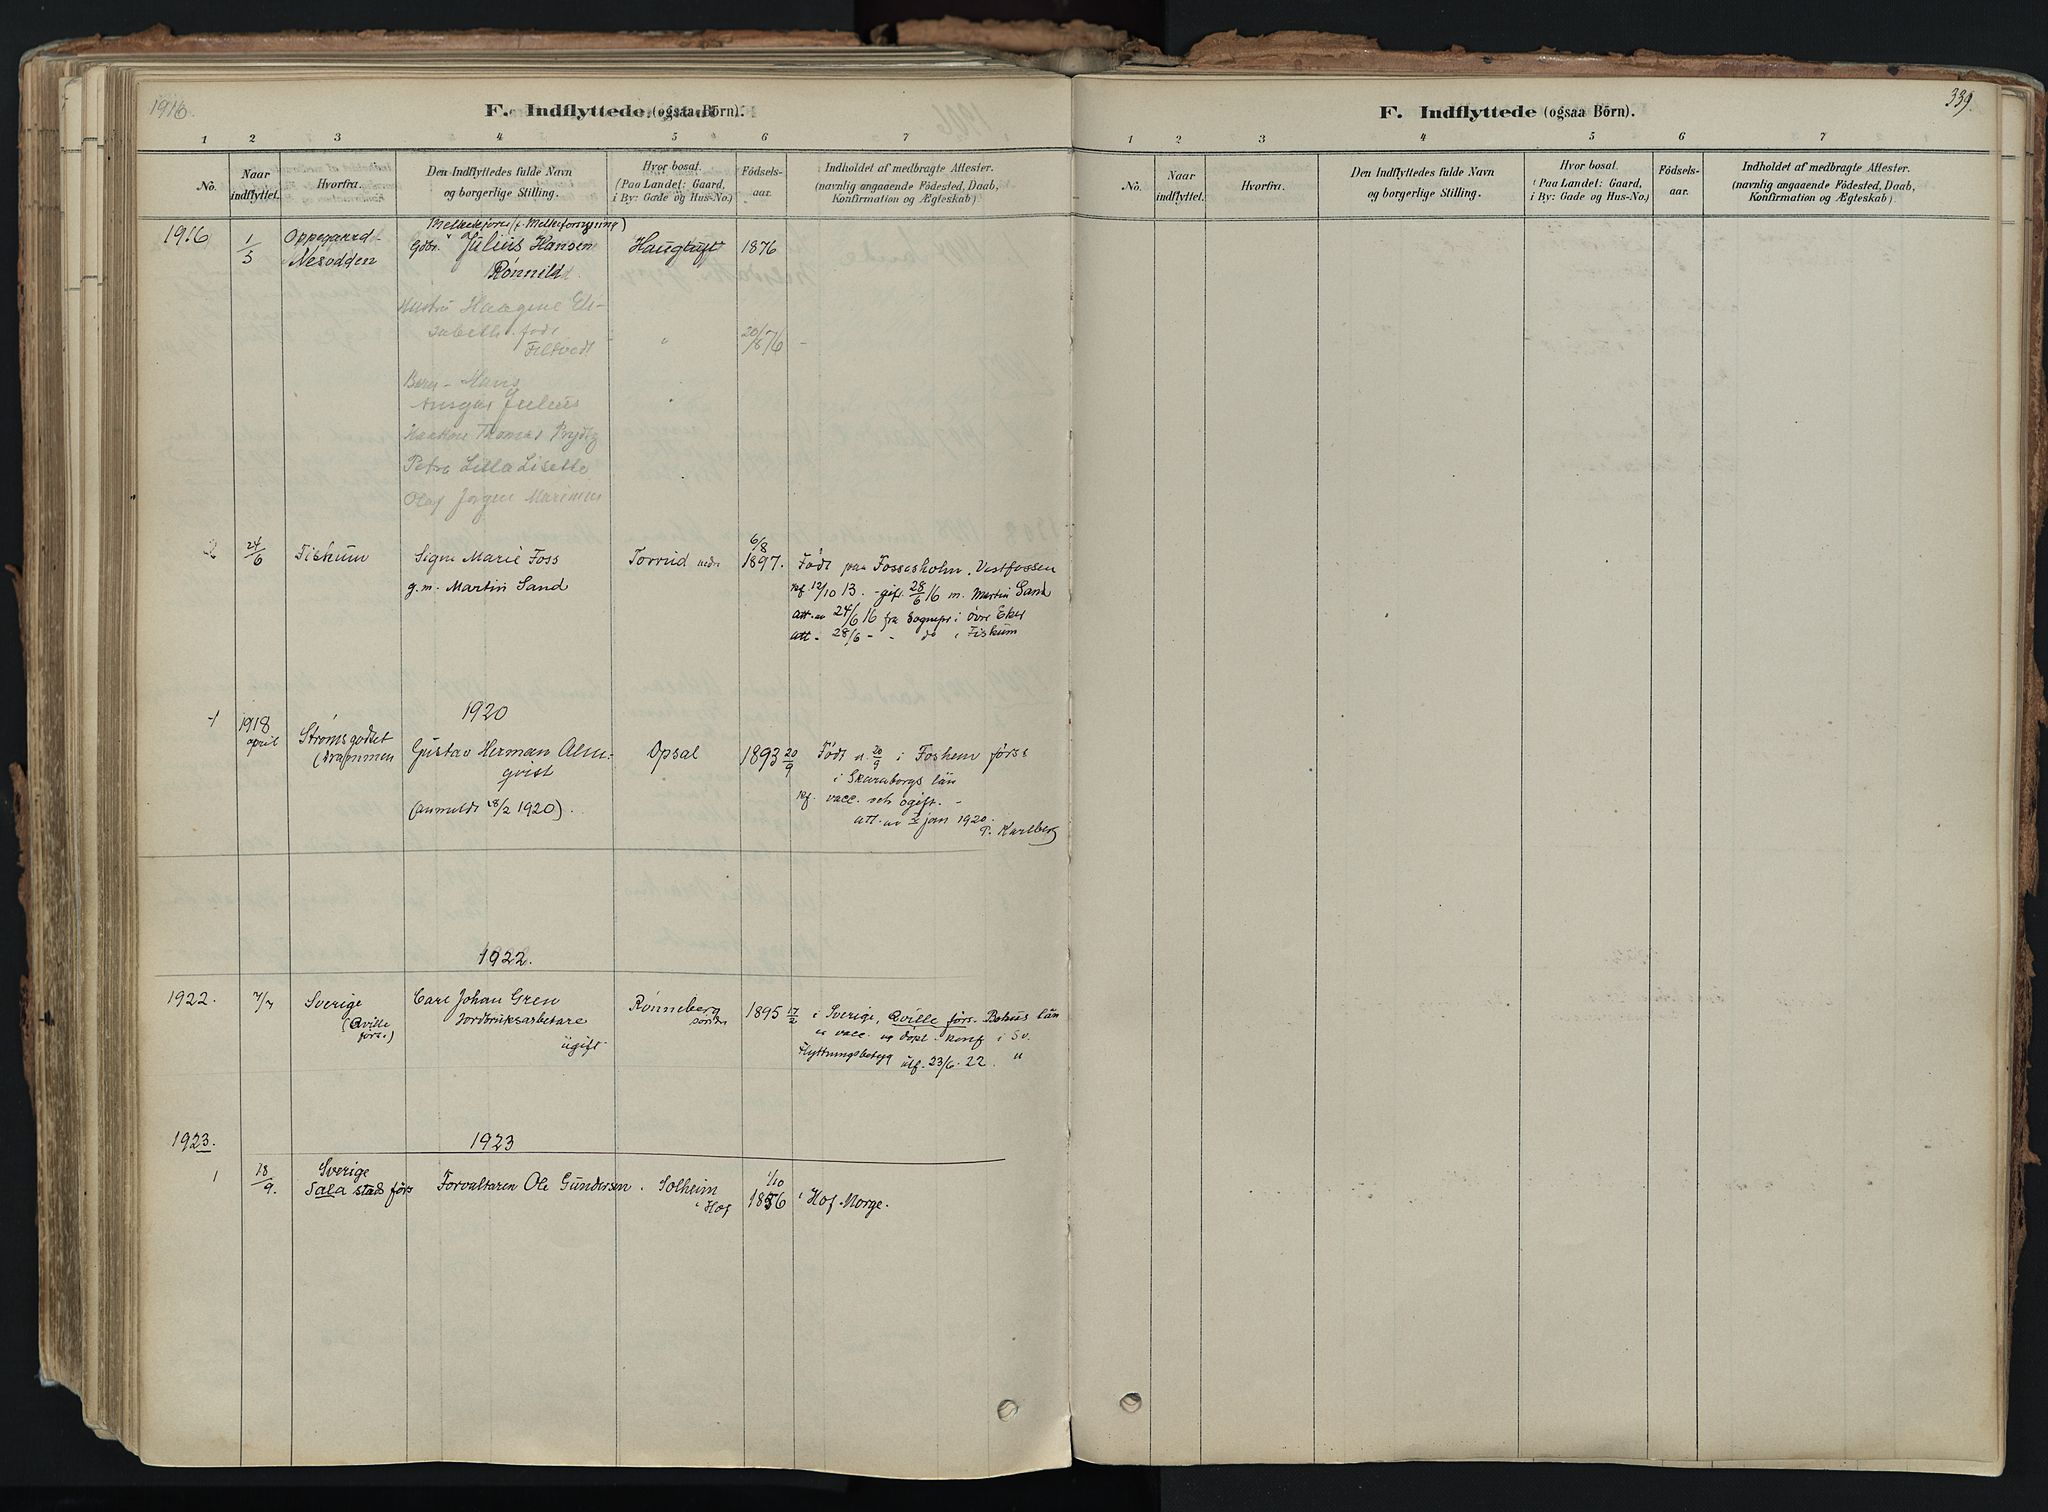 1916
F. Indflyttede (ogsaa Börn).
1 2 3 4 5 6 7
No.
Naar indflyttet.
Hvorfra.
Den Indflyttedes fulde Navn
og borgerlige Stilling.
Hvor bosat.
(Paa Landet: Gaard,
i By: Gade og Hus-No.)
Födsels-
aar.
Indholdet af medbragte Attester.
(navnlig angaaende Födested, Daab,
Konfirmation og Ægteskab)
1916 1/5 Oppegaard- Gdbr. Julius Hansen 1876
Nesodden Rønnild
Hustru Haagine Eli-
sabeth født
Filtvedt " 20/6 76
Børn - Hans
Ansgar Julius
Haakon Thomas Prydz
Petra Lilla Lisette
Olaf Jørgen Marinius
2 24/6 Fiskum Signe Marie Foss Torrud nedr 6/8 1897. Født paa Fossesholm, Vestfossen
g.m. Martin Sand kf. 12/10 13. - gift 28/6 16 m. Martin Sand
att. av 24/6 16 fra Sognepr i övre Eker
att - 28/6 - - do i Fiskum
1920
1 1918 april Strømsgodset Gustav Herman Alm- Opsal 1893 20/9 Födt d. 20/9 i Foshem förs:
(Drammen qvist i Skaraborgs län
(anmeldt 18/2 1920). kf. vacc. och ogift. -
att. av jan 1920.
P. Karlberg
1922.
1922. 7/7 Sverige Carl Johan Gren Rønneberg 1895 17/2 i Sverige, Qville förs. Bohus län
(Qville förs.) Jordbruksarbetare søndre er vacc. og døpt. konf i Sv.
ugift Flyttningsbetyg utf. 23/6. 22. "
1923. 1923
1 18/9. Sverige
Sala stads förs Forvaltaren Ole Gundersen. Solheim i Hof 1/10 1856 i Hof. Norge.
339.
F. Indflyttede (ogsaa Börn).
1 2 3 4 5 6 7
No.
Naar
indflyttet.
Hvorfra.
Den Indflyttedes fulde Navn
og borgerlige Stilling.
Hvor bosat.
(Paa Landet: Gaard,
i By: Gade og Hus-No.)
Födsels-
aar.
Indholdet af medbragte Attester.
(navnlig angaaende Födested, Daab,
Konfirmation og Ægteskab)